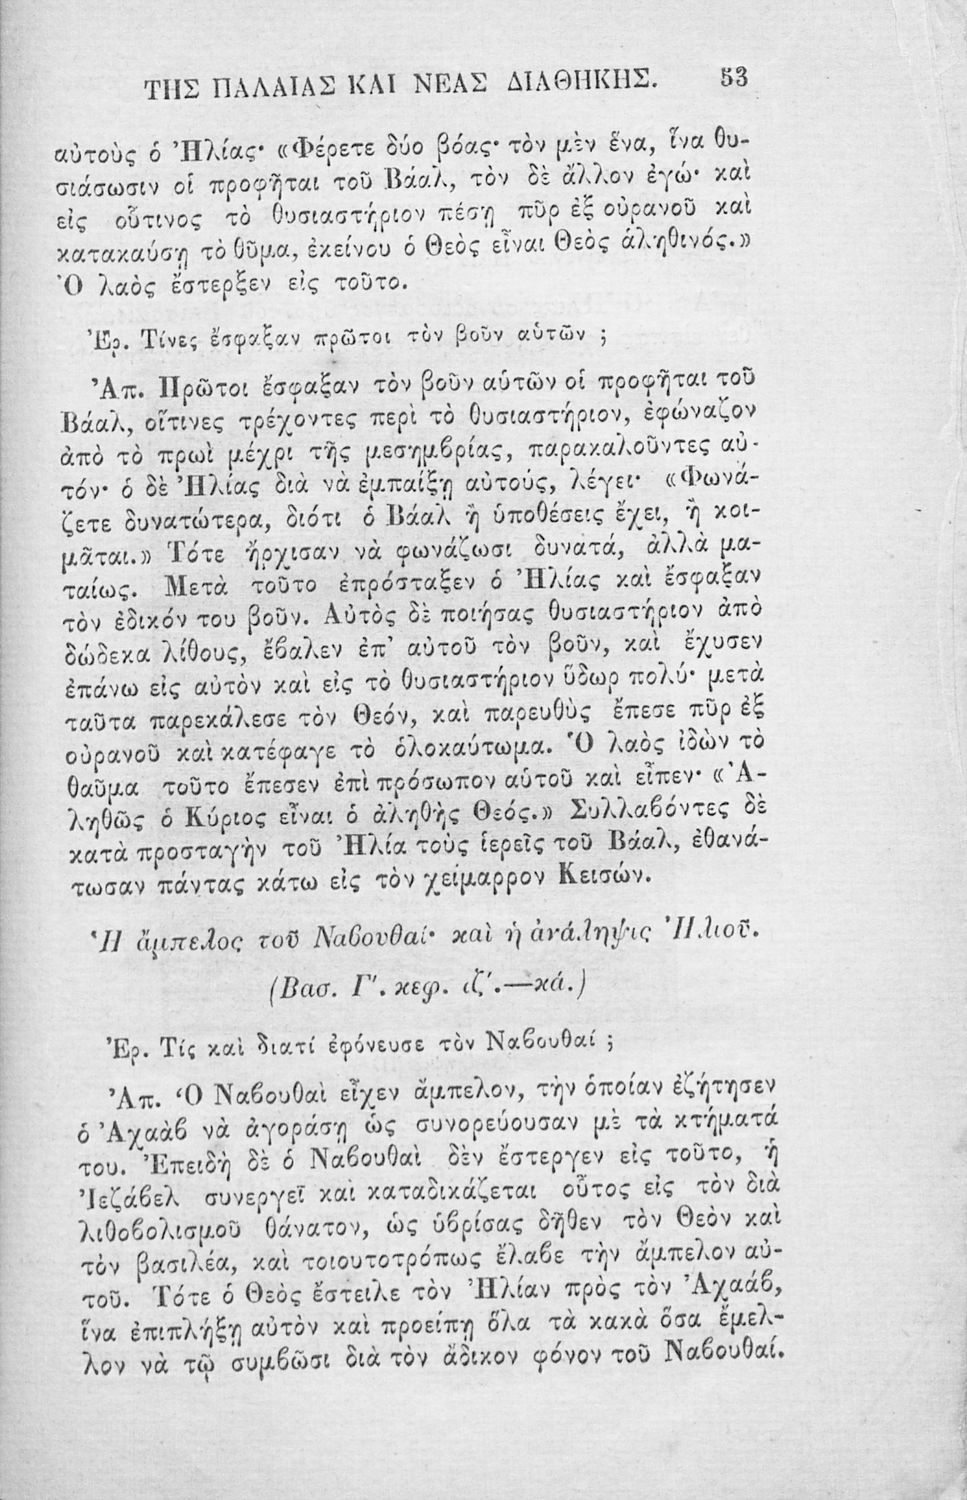 ΤΗΣ ΠΑΛΑΙΑΣ ΚΑΙ ΝΕΑΣ ΔΙΑΘΗΚΗΣ. 53
αὐτοὺς ὁ Ἠλίας· «Φέρετε δύο βόας· τὸν μὲν ἕνα, ἵνα θυ-
σιάσωσιν οἱ προφῆται τοῦ Βάαλ, τὸν δὲ ἄλλον ἐγώ· καὶ
εἰς οὗτινος τὸ θυσιαστήριον πέσῃ πῦρ ἐξ οὐρανοῦ καὶ
κατακαύσῃ τὸ θῦμα, ἐκείνου ὁ Θεὸς εἶναι Θεὸς ἀληθινός.»
Ὁ λαὸς ἔστερξεν εἰς τοῦτο.
Ἐρ. Τίνες ἔσφαξαν πρῶτοι τὸν βοῦν αὑτῶν ;
Ἀπ. Πρῶτοι ἔσφαξαν τὸν βοῦν αὑτῶν οἱ προφῆται τοῦ
Βάαλ, οἵτινες τρέχοντες περὶ τὸ θυσιαστήριον, ἐφώναζον
ἀπὸ τὸ πρωῒ μέχρι τῆς μεσημβρίας, παρακαλοῦντες αὐ-
τόν· ὁ δὲ Ἠλίας διὰ νὰ ἐμπαίξῃ αὐτούς, λέγει· «Φωνά-
ζετε δυνατώτερα, διότι ὁ Βάαλ ἢ ὑποθέσεις ἔχει, ἢ κοι-
μᾶται.» Τότε ἤρχισαν νὰ φωνάζωσι δυνατά, ἀλλὰ μα-
ταίως. Μετὰ τοῦτο ἐπρόσταξεν ὁ Ἠλίας καὶ ἔσφαξαν
τὸν ἐδικόν του βοῦν. Αὐτὸς δὲ ποιήσας θυσιαστήριον ἀπὸ
δώδεκα λίθους, ἔβαλεν ἐπ᾽ αὐτοῦ τὸν βοῦν, καὶ ἔχυσεν
ἐπάνω εἰς αὐτὸν καὶ εἰς τὸ θυσιαστήριον ὕδωρ πολύ· μετὰ
ταῦτα παρεκάλεσε τὸν Θεόν, καὶ παρευθὺς ἔπεσε πῦρ ἐξ
οὐρανοῦ καὶ κατέφαγε τὸ ὁλοκαύτωμα. Ὁ λαὸς ἰδὼν τὸ
θαῦμα τοῦτο ἔπεσεν ἐπὶ πρόσωπον αὑτοῦ καὶ εἶπεν· «Ἀ-
ληθῶς ὁ Κύριος εἶναι ὁ ἀληθὴς Θεός.» Συλλαβόντες δὲ
κατὰ προσταγὴν τοῦ Ἠλία τοὺς ἱερεῖς τοῦ Βάαλ, ἐθανά-
τωσαν πάντας κάτω εἰς τὸν χείμαρρον Κεισών.
Ἡ ἄμπελος τοῦ Ναβουθαί· καὶ ἡ ἀνάληψις Ἠλιοῦ.
(Βασ. Γ΄. κεφ. ιζ΄.—κά.)
Ἐρ. Τίς καὶ διατί ἐφόνευσε τὸν Ναβουθαί ;
Ἀπ. Ὁ Ναβουθαὶ εἶχεν ἄμπελον, τὴν ὁποίαν ἐζήτησεν
ὁ Ἀχαὰβ νὰ ἀγοράσῃ ὡς συνορεύουσαν μὲ τὰ κτήματά
του. Ἐπειδὴ δὲ ὁ Ναβουθαὶ δὲν ἔστεργεν εἰς τοῦτο, ἡ
Ἰεζάβελ συνεργεῖ καὶ καταδικάζεται οὗτος εἰς τὸν διὰ
λιθοβολισμοῦ θάνατον, ὡς ὑβρίσας δῆθεν τὸν Θεὸν καὶ
τὸν βασιλέα, καὶ τοιουτοτρόπως ἔλαβε τὴν ἄμπελον αὐ-
τοῦ. Τότε ὁ Θεὸς ἔστειλε τὸν Ἠλίαν πρὸς τὸν Ἀχαάβ,
ἵνα ἐπιπλήξῃ αὐτὸν καὶ προείπῃ ὅλα τὰ κακὰ ὅσα ἔμελ-
λον νὰ τῷ συμβῶσι διὰ τὸν ἄδικον φόνον τοῦ Ναβουθαί.